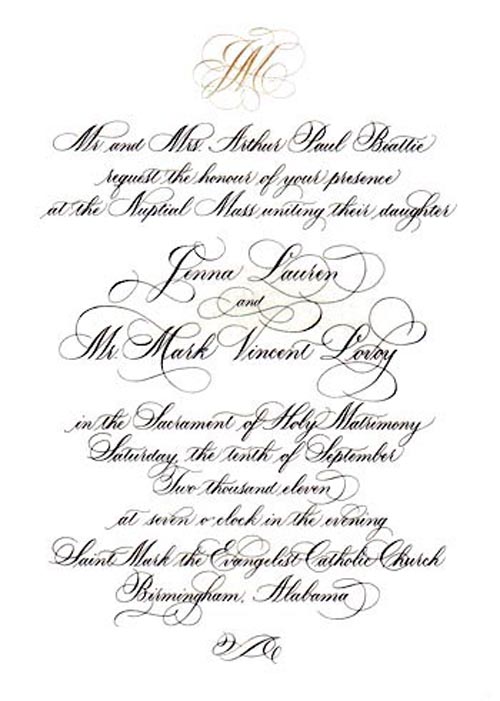 JM
Mr and Mrs. Arthur Paul Beattie
request the honour of your presence
at the Nuptial Mass uniting their daughter
Jenna Lauren
and
Mr. Mark Vincent Lovoy
in the Sacrament of Holy Matrimony
Saturday, the tenth of September
Two thousand eleven
at seven o'clock in the evening
Saint Mark the Evangelist Catholic Church
Birmingham, Alabama